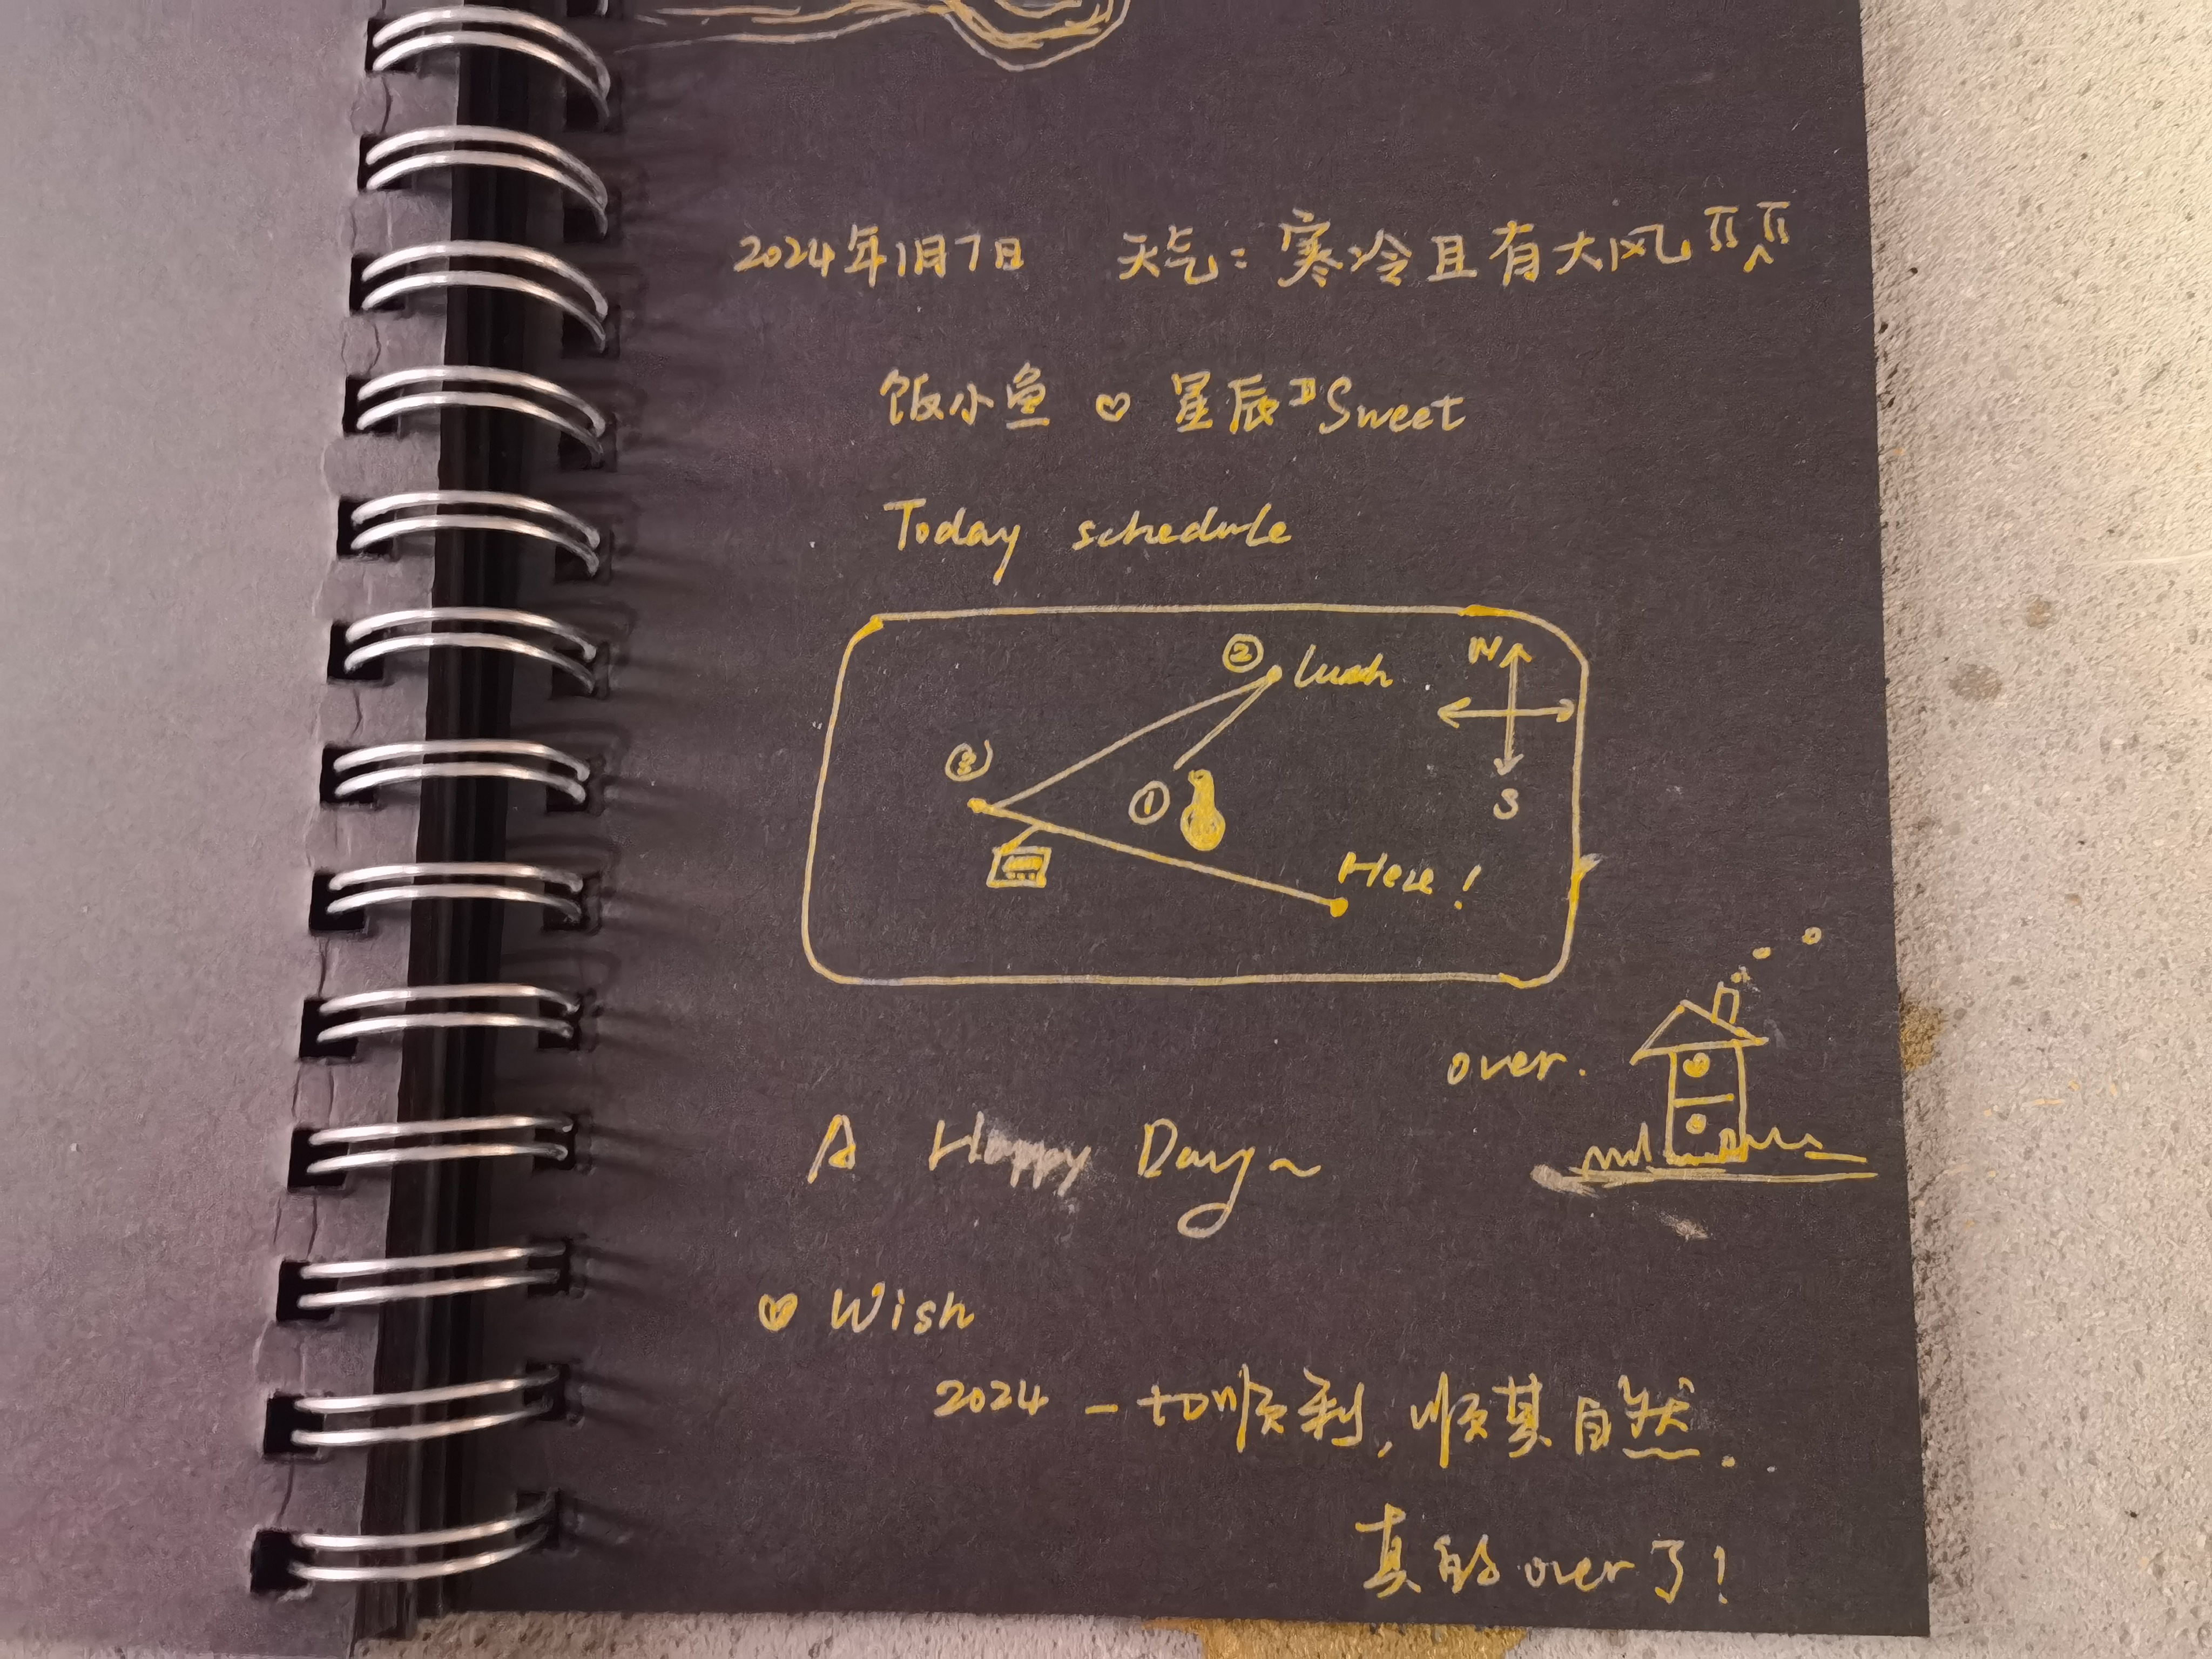 2024年1月7日 天气：寒冷且有大风
饭小鱼 ♡ 星辰 Sweet
Today schedule
N
②
③
①
S
Here!
over.
A Happy Day~
♡ Wish
2024 一切顺利，顺其自然.
真的over了！